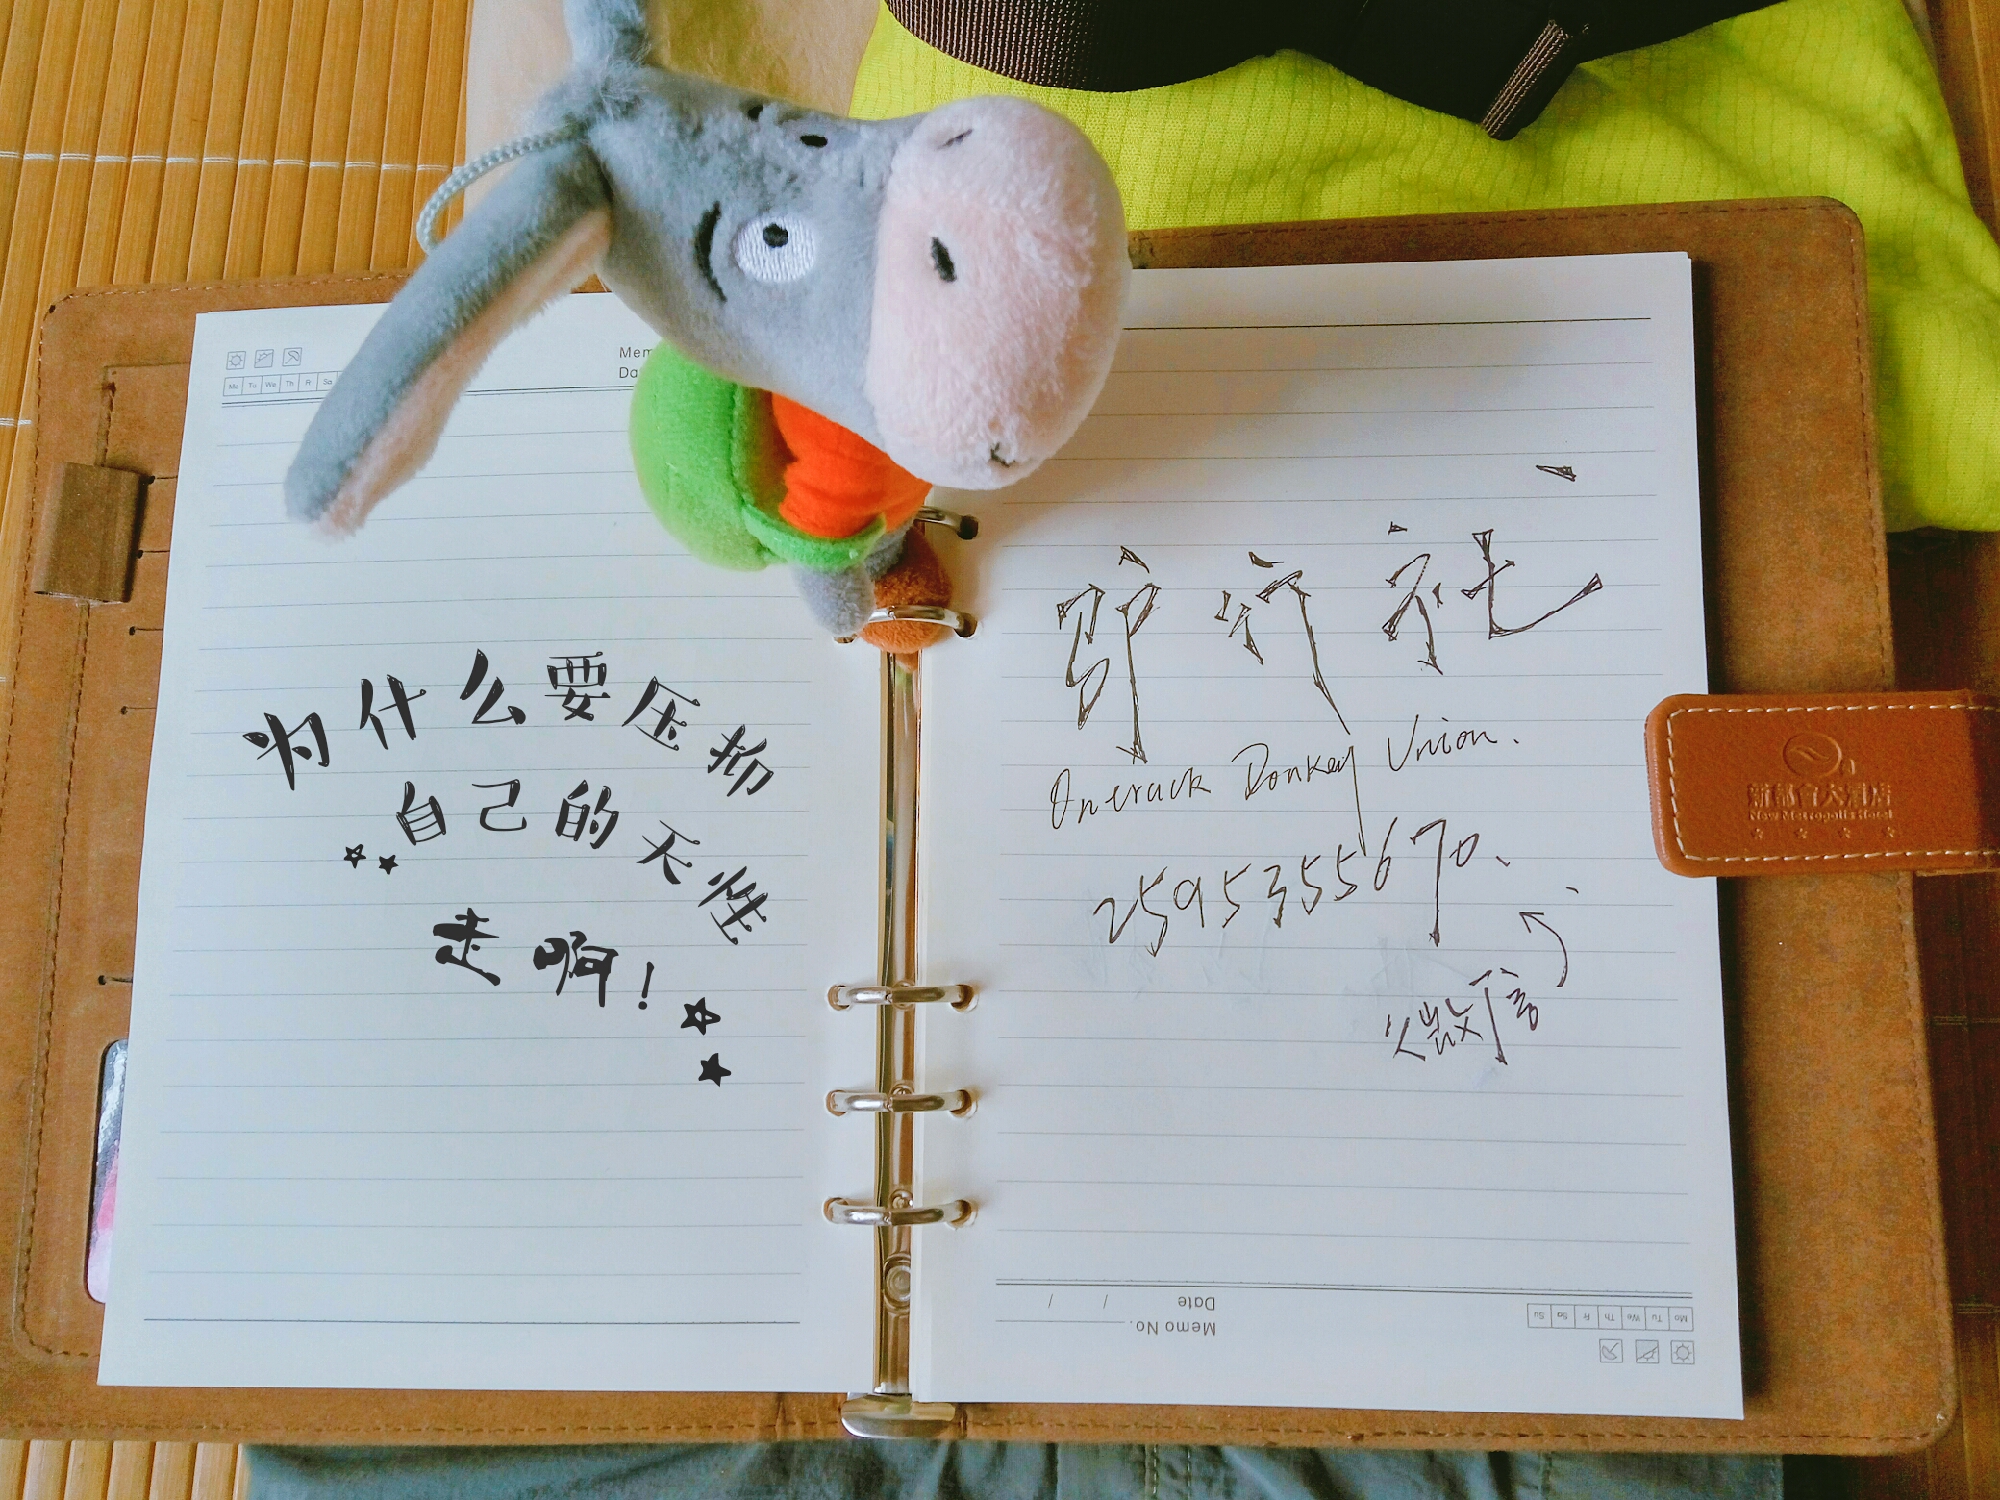 Mem
Da
Mo Tu We Th Fr Sa
为什么要压抑
自己的天性
走啊！
驴行社
Ontrack Donkey Union.
2595355670.
微信
新都会大酒店
New Metropolis Hotel
Date / /
Memo No.
Mo Tu We Th Fr Sa Su